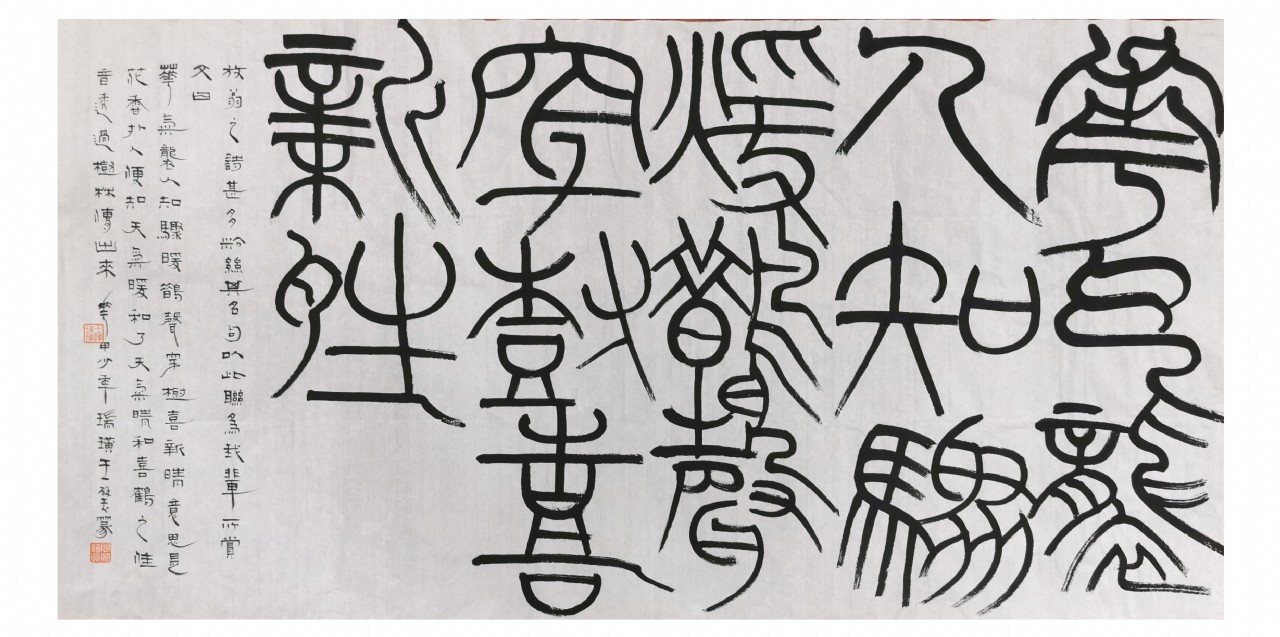 華气襲
人知驟
煖鵲聲
穿樹喜
新夝
放翁之詩甚多粉絲其名句以此聯為我輩所賞
文曰
華氣襲人知驟暖鵲聲穿樹喜新晴意思是
花香扑人便知天氣暖和了天氣晴和喜鶴之佳
音透過樹林傳出來華甲少年瑞璜王篆